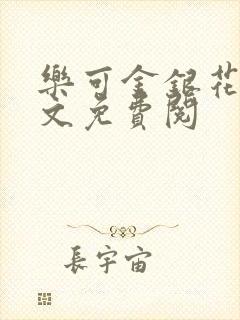 樂可金銀花
文免費閱
長宇宙